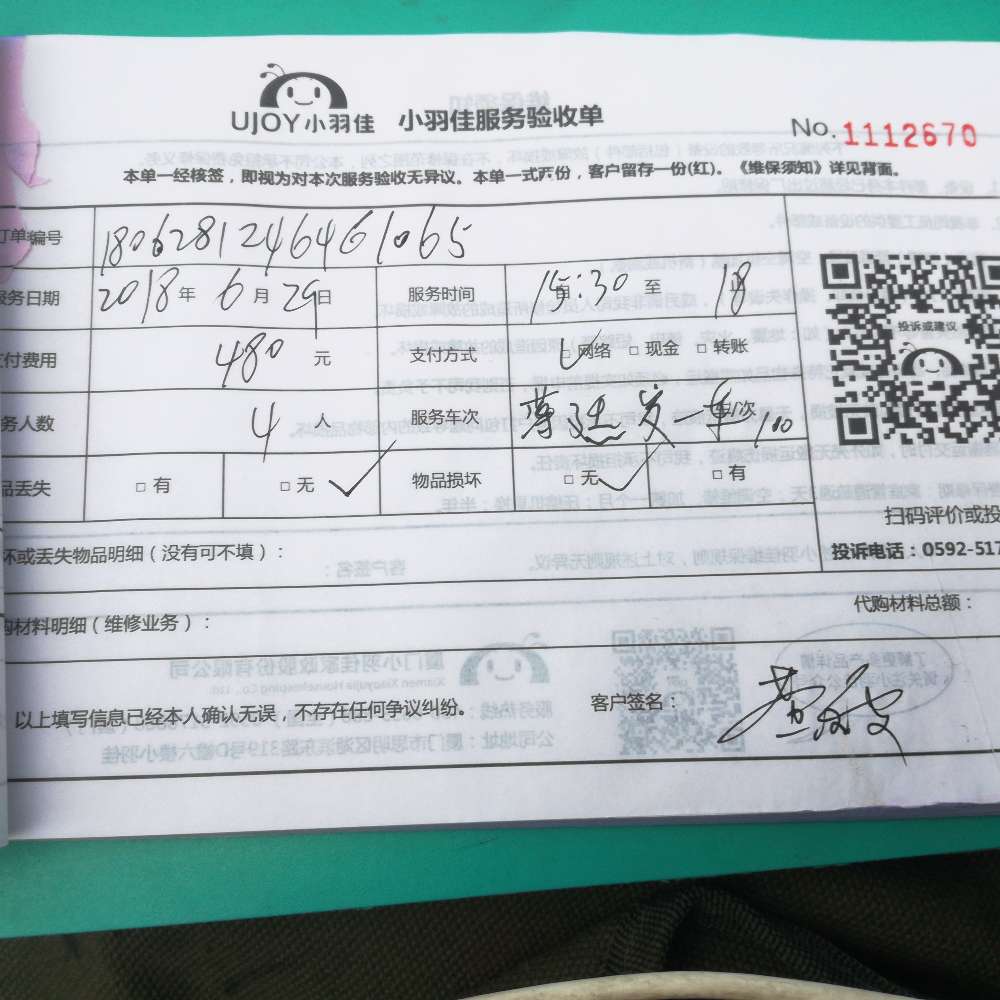 UJOY小羽佳 小羽佳服务验收单
No.1112670
本单一经核签，即视为对本次服务验收无异议。本单一式两份，客户留存一份(红)。《维保须知》详见背面。
订单编号 1806281246461065
服务日期 2018年 6月29日 服务时间 15:30 至 18
支付费用 480 元 支付方式 □网络 □现金 □转账
务人数 4 人 服务车次 车/次 100
品丢失 □有 □无 ✓ 物品损坏 □无 ✓ □有
投诉或建议
扫码评价或投
投诉电话：0592-517
坏或丢失物品明细（没有可不填）：
代购材料总额：
购材料明细（维修业务）：
以上填写信息已经本人确认无误，不存在任何争议纠纷。 客户签名：